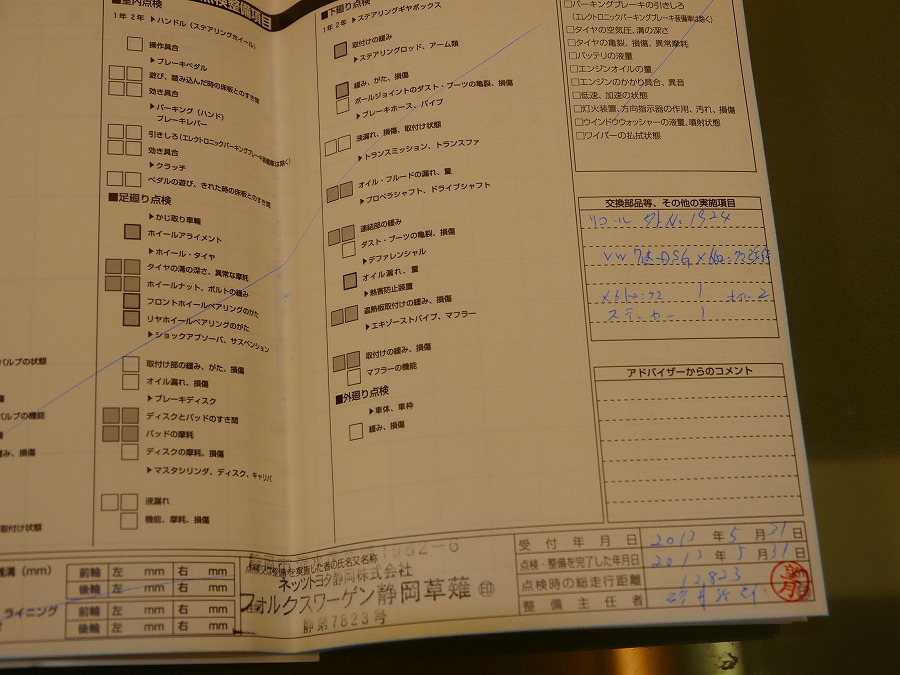 点検整備項目
■室内点検
1年 2年 ▶ハンドル（ステアリングホイール）
操作具合
▶ブレーキペダル
遊び、踏み込んだ時の床板とのすき間
効き具合
▶パーキング（ハンド）
ブレーキレバー
引きしろ（エレクトロニックパーキングブレーキ装備車は除く）
効き具合
▶クラッチ
ペダルの遊び、きれた時の床板とのすき間
■足廻り点検
▶かじ取り車輪
ホイールアライメント
▶ホイール・タイヤ
タイヤの溝の深さ、異常な摩耗
ホイールナット、ボルトの緩み
フロントホイールベアリングのがた
リヤホイールベアリングのがた
▶ショックアブソーバ、サスペンション
取付け部の緩み、がた、損傷
オイル漏れ、損傷
▶ブレーキディスク
ディスクとパッドのすき間
パッドの摩耗
ディスクの摩耗、損傷
▶マスタシリンダ、ディスク、キャリパ
液漏れ
機能、摩耗、損傷
バルブの状態
バルブの機能
緩み、損傷
取付け状態
■下廻り点検
1年 2年 ▶ステアリングギヤボックス
取付けの緩み
▶ステアリングロッド、アーム類
緩み、がた、損傷
ボールジョイントのダスト・ブーツの亀裂、損傷
▶ブレーキホース、パイプ
液漏れ、損傷、取付け状態
▶トランスミッション、トランスファ
オイル・フルードの漏れ、量
▶プロペラシャフト、ドライブシャフト
連結部の緩み
ダスト・ブーツの亀裂、損傷
▶デファレンシャル
オイル漏れ、量
▶熱害防止装置
遮熱板取付けの緩み、損傷
▶エキゾーストパイプ、マフラー
取付けの緩み、損傷
マフラーの機能
■外廻り点検
▶車体、車枠
緩み、損傷
□パーキングブレーキの引きしろ
（エレクトロニックパーキングブレーキ装備車は除く）
□タイヤの空気圧、溝の深さ
□タイヤの亀裂、損傷、異常摩耗
□バッテリの液量
□エンジンオイルの量
□エンジンのかかり具合、異音
□低速、加速の状態
□灯火装置、方向指示器の作用、汚れ、損傷
□ウインドウウォッシャーの液量、噴射状態
□ワイパーの払拭状態
交換部品等、その他の実施項目
リコール
1924
VW 7速DSG
ステッカー 1
アドバイザーからのコメント
残溝（mm）
前輪 左 mm 右 mm
後輪 左 mm 右 mm
ライニング
前輪 左 mm 右 mm
後輪 左 mm 右 mm
1982-6
点検又は整備を実施した者の氏名又は名称
ネッツトヨタ静岡株式会社
フォルクスワーゲン静岡草薙 印
静第7823号
受付年月日 2013年5月31日
点検・整備を完了した年月日 2013年5月31日
点検時の総走行距離 12,823
整備主任者